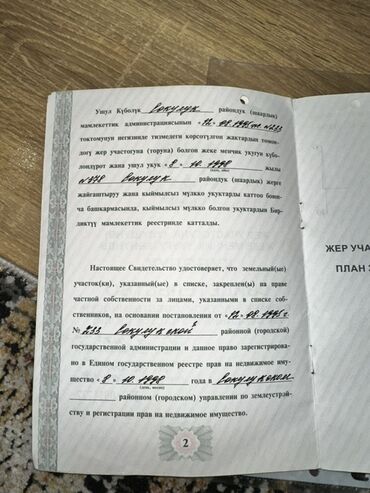 Ушул Күбөлүк Сокулук райондук (шаардык)
мамлекеттик администрациясынын «12» 08.1995ж. №233
токтомунун негизинде тизмедеги көрсөтүлгөн жактардын төмөн-
дөгү жер участогуна (торуна) болгон жеке менчик укугун күбө-
лөндүрөт жана ушул укук «8» 10. 1998 жылы
(күнү, айы)
№878 Сокулук райондук (шаардык) жерге
жайгаштыруу жана кыймылсыз мүлккө укуктарды каттоо боюн-
ча башкармасында, кыймылсыз мүлккө болгон укуктардын Бир-
диктүү мамлекеттик реестринде катталды.
Настоящее Свидетельство удостоверяет, что земельный(ые)
участок(ки), указанный(ые) в списке, закреплен(ы) на праве
частной собственности за лицами, указанными в списке соб-
ственников, на основании постановления от «12» 08.1995 г
№ 233 Сокулукской районной (городской)
государственной администрации и данное право зарегистриро-
вано в Едином государственном реестре прав на недвижимое иму-
щество «8» 10. 1998 года в Сокулукском
(день, месяц)
районном (городском) управлении по землеустрой-
ству и регистрации прав на недвижимое имущество.
2
ЖЕР УЧА
ПЛАН З